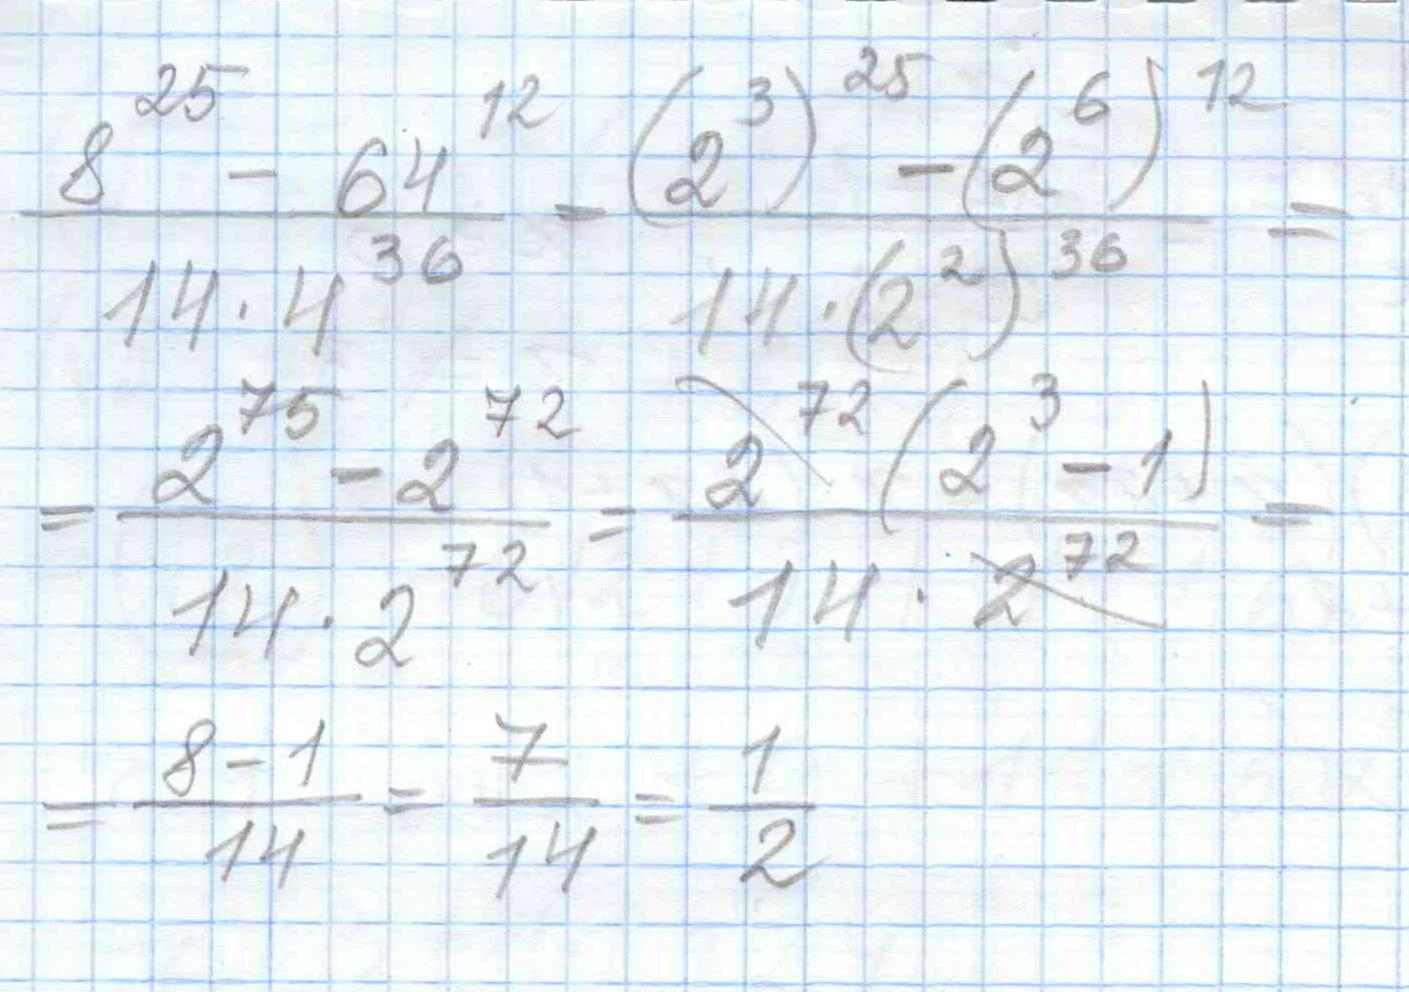 \frac{8^{25} - 64^{12}}{14 \cdot 4^{36}} = \frac{(2^3)^{25} - (2^6)^{12}}{14 \cdot (2^2)^{36}} =
= \frac{2^{75} - 2^{72}}{14 \cdot 2^{72}} = \frac{2^{72} (2^3 - 1)}{14 \cdot 2^{72}} =
= \frac{8 - 1}{14} = \frac{7}{14} = \frac{1}{2}